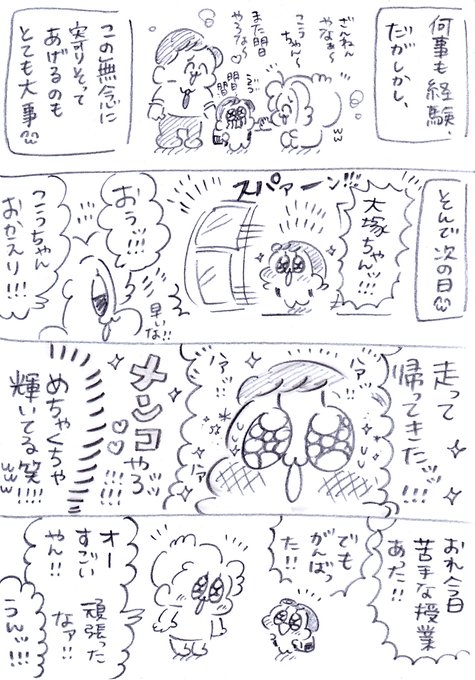 何事も経験、
だがしかし、
ざんねん
やなぁ〜
こうちゃん〜
また明日
やろな〜♡
この無念に
寄りそって
あげるのも
とても大事
そんで次の日
大塚ちゃんッ!!!
スパァーン!!!
おうッ!!!
早いな!!
こうちゃん
おかえり!!!
走って
帰ってきたッッ!!!
ハァ
ハァッ
メンコやろッッ!!!!
めちゃくちゃ
輝いてる笑!!!!
www
おれ今日
苦手な授業
あった!!
でも
がんばっ
た!!
オー
すごい
やん!!
頑張った
なァ!!
うんッ!!!